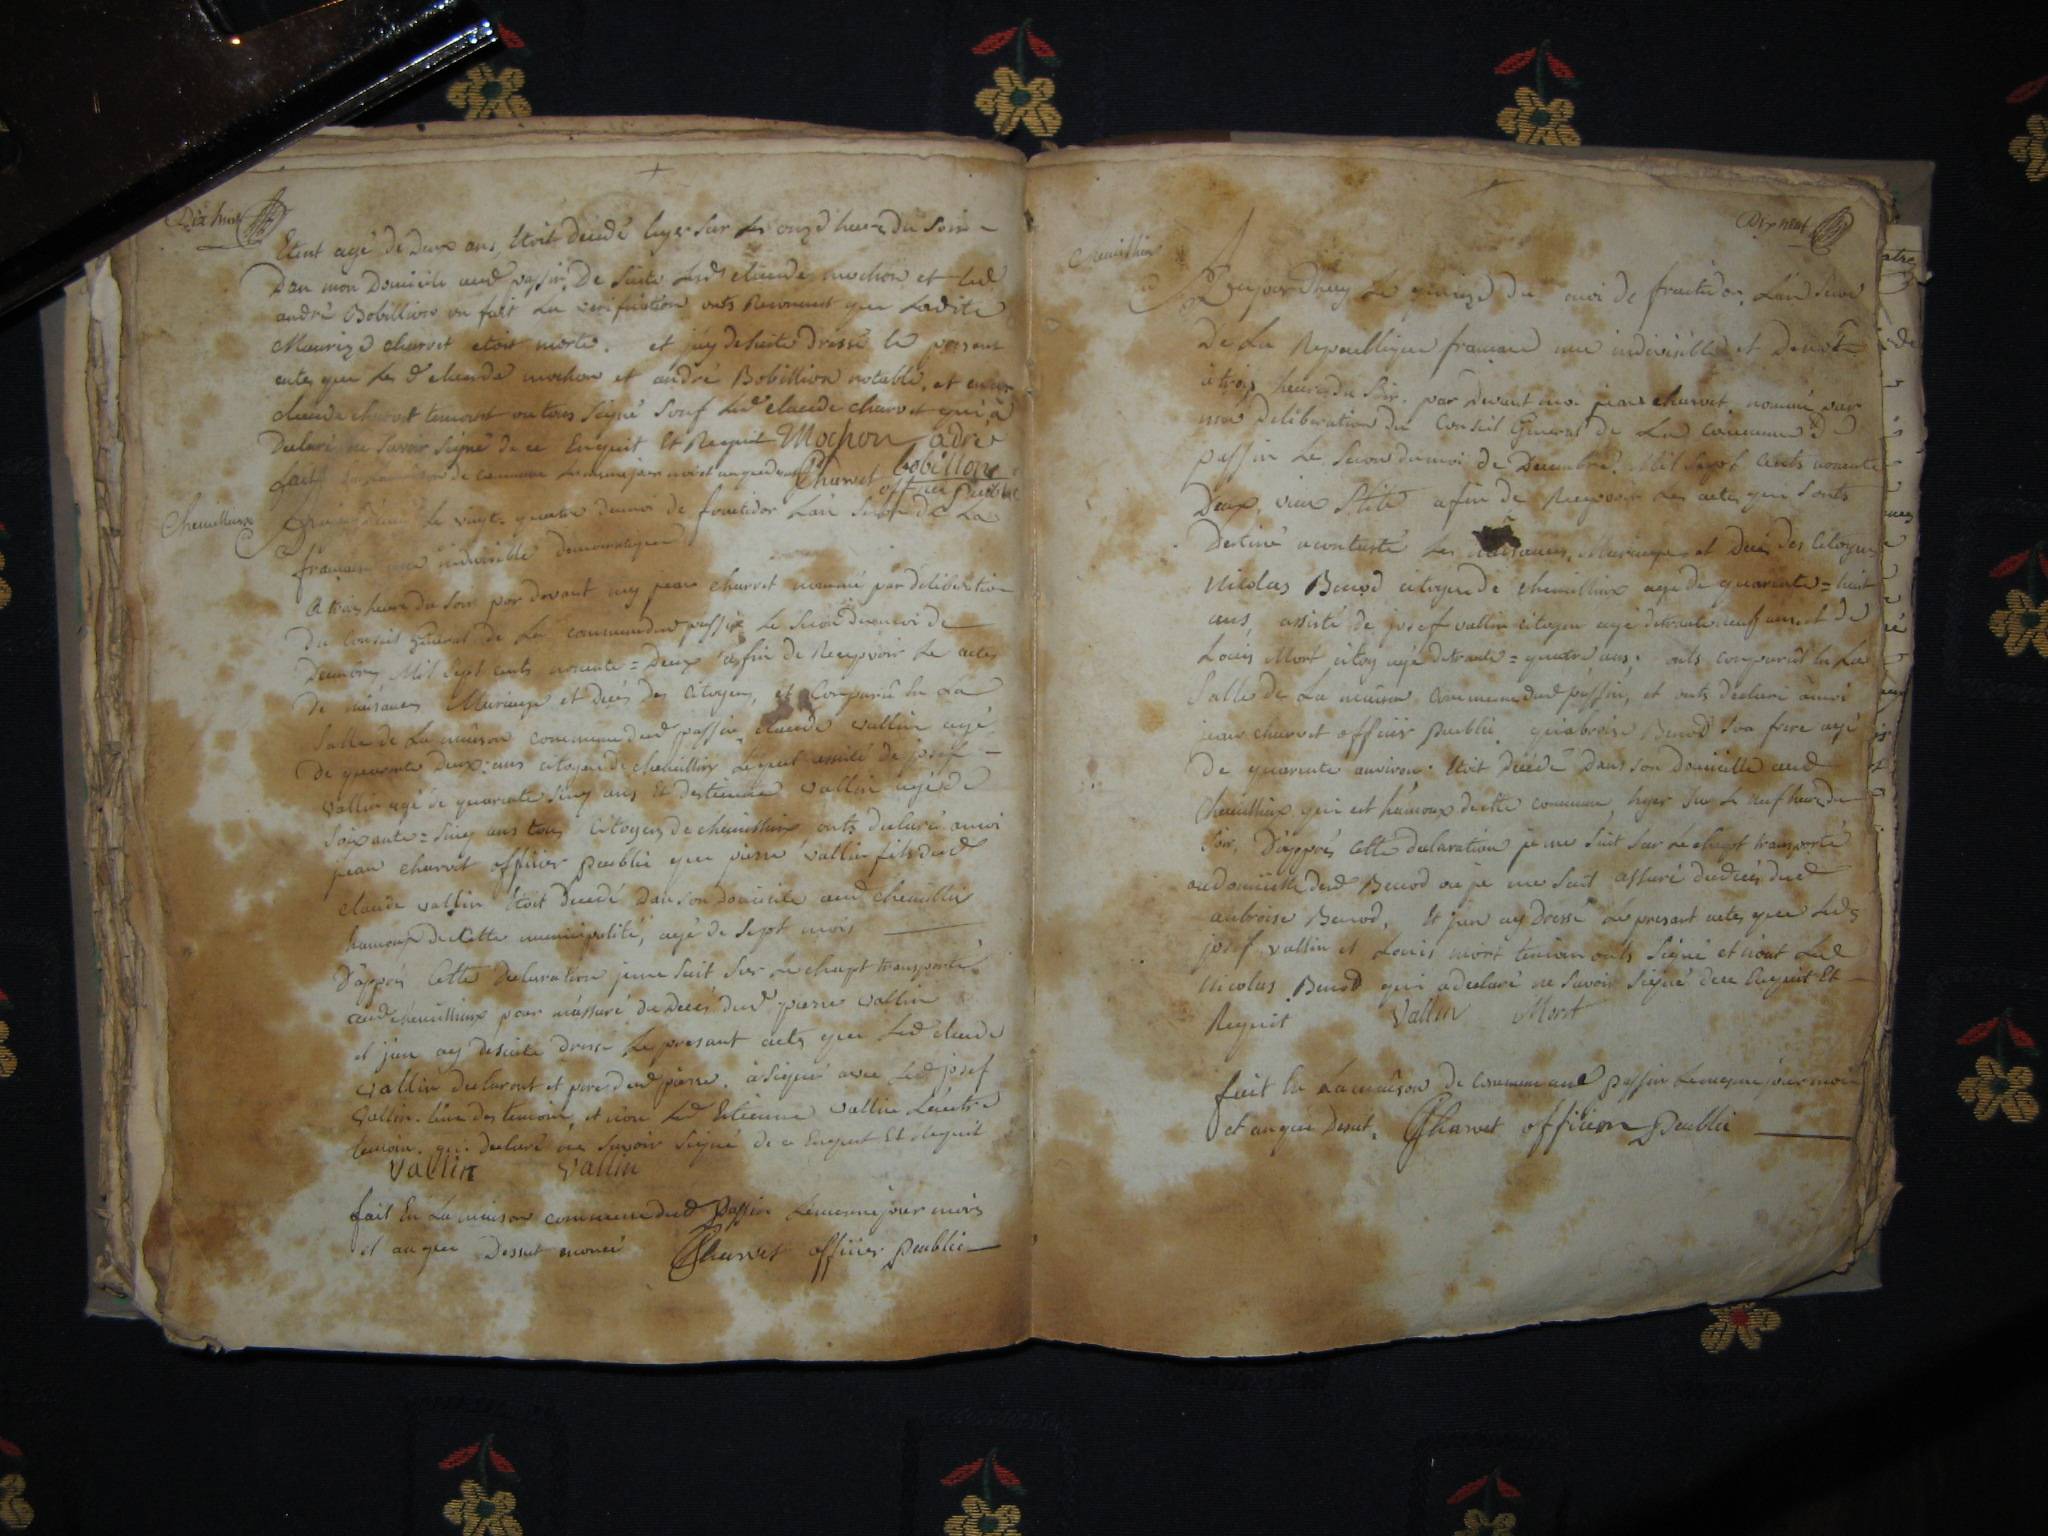 Dix huit
Etent agé de Deux ans, Etoit décédé hyer sur les onze heure du Soir
Dan mon Domicile aud passin, De Suite Led claude mochon et led
andré Bobillion on fait La verifiation onts Reconnut que Ladite
Maurize charvet etoit morte. et j'ay desuite dressé le present
actes que Les d claude mochon et andré Bobillion notable, et encor
claude charvet temoins on tous Signé Souf Led claude charvet qui à
Declaré ne Savoir Signé de ce Enquit Et Requit Mochon adré
fait En La maison de commune Le meme jour mois et an que dessus Charvet bobillon
officier Public
Cheuillieux
aujourdhuy Le vingt-quatre du moi de fructidor L'an Second de La
française une indivisible democratique
a trois heure du Soir par devant moy jean charvet nommé par deliberation
du Conseil General de La commune de passin Le Second du moi de
Decembre Mil Sept cents nonente=Deux afin de Recepvoir Le actes
De naisances Mariages et Decés des Citoyens, et Comparû En La
Salle de La maison commune dud passin claude vallin agé
De quarante deux ans citoyen de cheuillieux Lequel assisté de josef
vallin agé de quarante Sinq ans Et destienne vallin agé de
Soixante=Sinq ans tous Citoyens de cheuillieux onts declaré a moi
jean charvet officier Peublic que pierre vallin fils dud
claude vallin Etoit Decedé Dan Son Domicile aud cheuillieu
hamoux de Cette municipalité, agé de Sept mois
D'apprés Cette declaration je me Suit Sur Le chapt transporté
aud cheuillieux pour m'assuré du Decés dud pierre vallin
et j'en ay desuite dressé Le presant actes que Led claude
vallin declarant et pere dud pierre. a Signé avec Led josef
vallin. L'un des temoins, et non Led Estienne vallin L'autre
temoin. qui declaré ne Savoir Signé de ce Enquit Et Requit
vallin vallin
fait En La maison commune dud Passin Le meme jour mois
et an que Dessut enoncé Charvet officier Peublic
Dix neuf
Cheuillieu
aujourdhuy Le quinze du moi de fructidor L'an Second
De La Repeublique française une indivisible et Democ
à trois heure du Soir. par devant moi jean charvet, nommé par
une deliberation du Conseil General de La Commune de
passin Le Second du moi de Decembre. Mil Sept Cents nonente
Deux, vieux Stile afin de Recepvoir Les actes qui Sonts
Destiné a contasté Les naisances, Mariages et Decés des Citoyens
Nicolas Benod citoyen de cheuillieux agé de quarante=huit
ans assisté de josef vallin citoyen agé de trante neuf ans et de
Louis Mort citoy agé de trante=quatre ans; onts comparût En La
Salle de La maison Commune dud passin, et onts declaré à moi
jean charvet officier Peublic. qu'abroise Benod Son frere agé
De quarente anviron. Etoit Decedé Dans Son Domicille aud
Cheuillieux qui est hamoux de cette commune, hyer Sur Le neuf heure du
Soir, D'apprés Cette declaration je me Suit Sur Le chapt transporté
au Domicille dud Benod ou je me Suit assuré du decés dud
anbroise Benod, Et j'en ay Dressé Le presant actes que Leds
josef vallin et Louis mort temoin onts Signé et nont Led
Nicolas Benod qui a declaré ne Savoir Signé dece Enquit Et
Requit vallin Mort
fait En La maison de commune aud passin Le meme jour moi
et an que Desut, Charvet officier Peublic